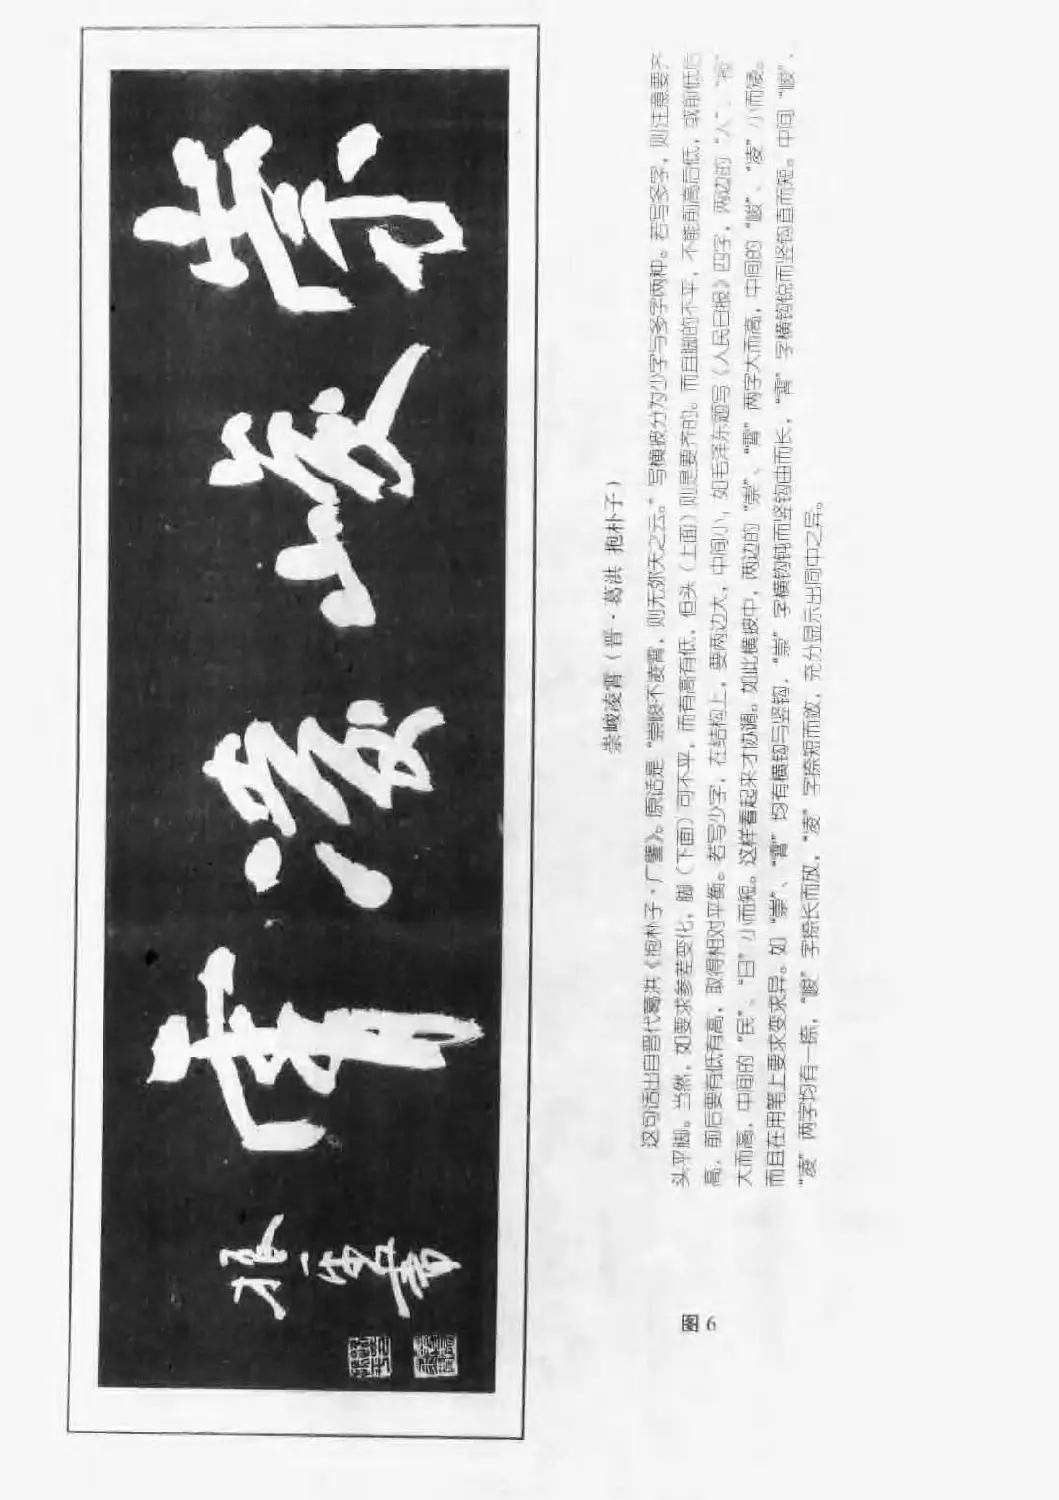 崇峻凌霄
张一
书
崇峻凌霄（晋·葛洪 抱朴子）
这句话出自晋代葛洪《抱朴子·广譬》。原话是“崇峻不凌霄，则无弥天之云。”写横披分为少字与多字两种。若写多字，则注意要齐
头平脚。当然，如要求参差变化，脚（下面）可不平，而有高有低，但头（上面）则是要齐的。而且脚的不平，不能前高后低，或前低后
高，前后要有低有高，取得相对平衡。若写少字，在结构上，要两边大，中间小，如毛泽东题写《人民日报》四字，两边的“人”、“报”
大而高，中间的“民”、“日”小而短。这样看起来才协调。如此横披中，两边的“崇”、“霄”两字大而高，中间的“峻”、“凌”小而矮。
而且在用笔上要求变求异。如“崇”、“霄”均有横钩与竖钩，“崇”字横钩钝而竖钩曲而长，“霄”字横钩锐而竖钩直而短。中间“峻”、
“凌”两字均有一捺，“峻”字捺长而放，“凌”字捺短而敛，充分显示出同中之异。
图 6